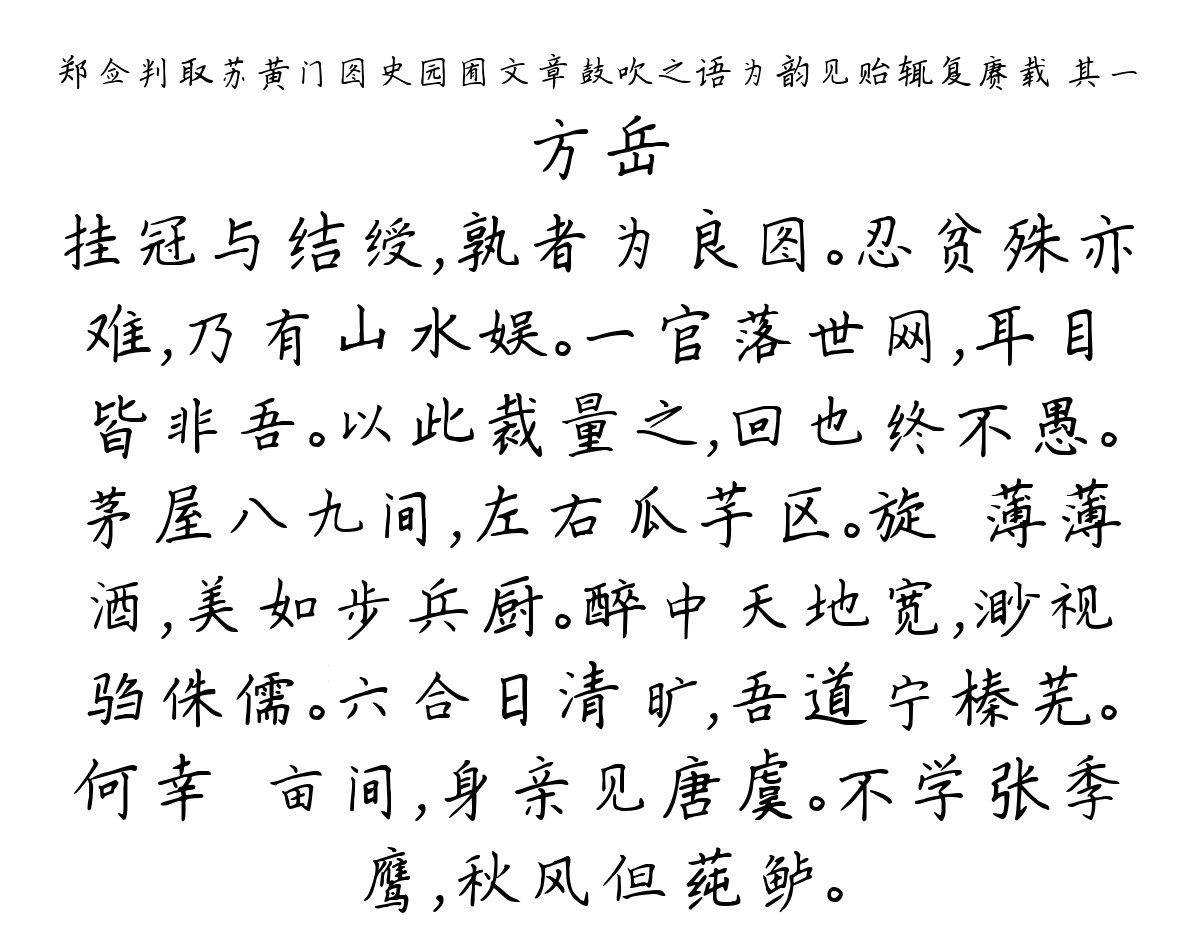 郑佥判取苏黄门图史园囿文章鼓吹之语为韵见贻辄复赓载 其一
方岳
挂冠与结绶,孰者为良图。忍贫殊亦
难,乃有山水娱。一官落世网,耳目
皆非吾。以此裁量之,回也终不愚。
茅屋八九间,左右瓜芋区。旋 薄薄
酒,美如步兵厨。醉中天地宽,渺视
驺侏儒。六合日清旷,吾道宁榛芜。
何幸 亩间,身亲见唐虞。不学张季
鹰,秋风但莼鲈。